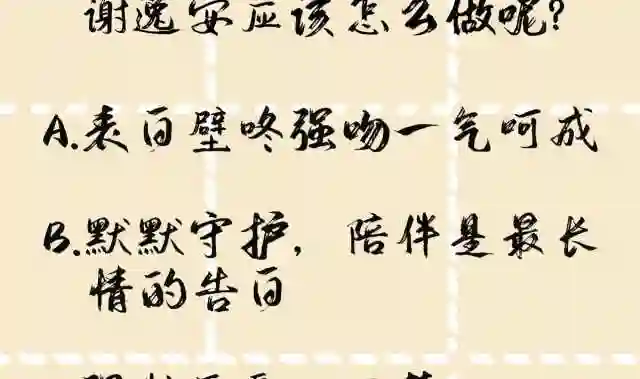 谢逸安应该怎么做呢?
A.表白壁咚强吻一气呵成
B.默默守护,陪伴是最长
情的告白